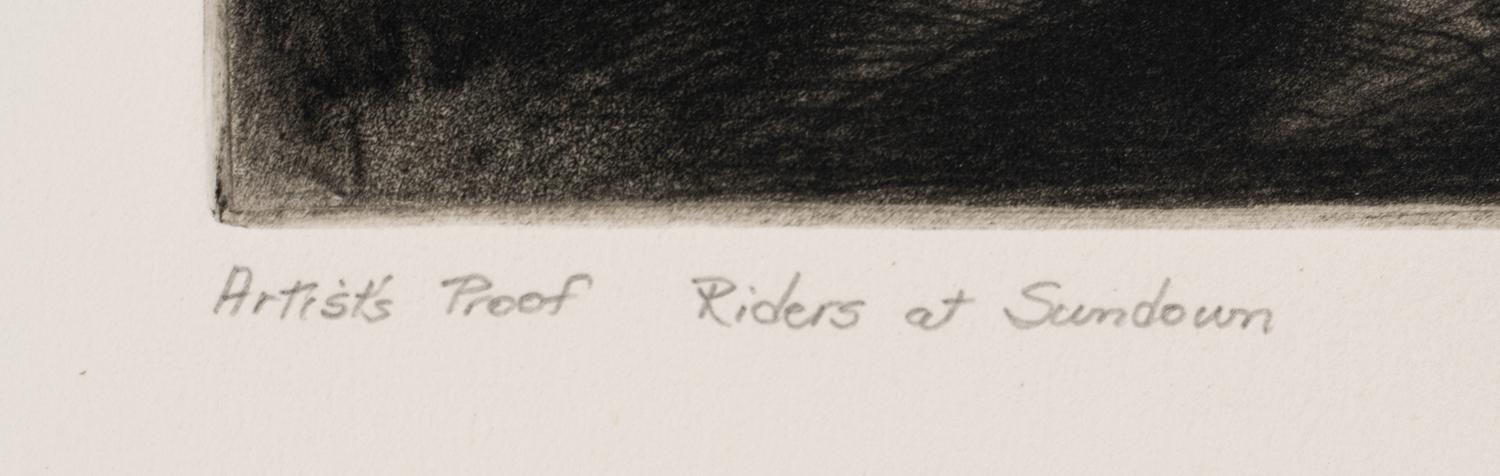 Artist's Proof Riders at Sundown